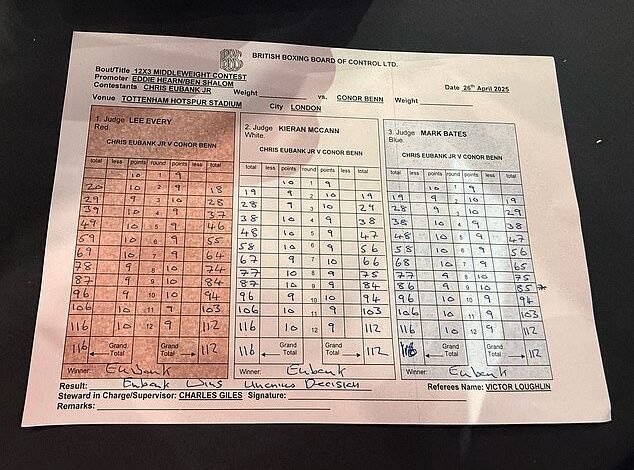 BRITISH BOXING BOARD OF CONTROL LTD.
Bout/Title 12X3 MIDDLEWEIGHT CONTEST
Promoter EDDIE HEARN/BEN SHALOM Date 26th April 2025
Contestants CHRIS EUBANK JR Weight vs. CONOR BENN Weight
Venue TOTTENHAM HOTSPUR STADIUM City LONDON
1. Judge LEE EVERY 2. Judge KIERAN MCCANN 3. Judge MARK BATES
Red. White. Blue.
CHRIS EUBANK JR V CONOR BENN CHRIS EUBANK JR V CONOR BENN CHRIS EUBANK JR V CONOR BENN
total less points round points less total total less points round points less total total less points round points less total
10 1 9 10 1 9 10 1 9
20 10 2 9 18 19 9 2 10 19 19 9 2 10 19
29 9 3 10 28 28 9 3 10 29 28 9 3 10 29
39 10 4 9 37 38 10 4 9 38 38 10 4 9 38
49 10 5 9 46 48 10 5 9 47 48 10 5 9 47
59 10 6 9 55 58 10 6 9 56 58 10 6 9 56
69 10 7 9 64 67 9 7 10 66 68 10 7 9 65
78 9 8 10 74 77 10 8 9 75 77 9 8 10 75
87 9 9 10 84 87 10 9 9 84 86 9 9 10 85*
96 9 10 10 94 96 9 10 10 94 96 10 10 9 94
106 10 11 9 103 106 10 11 9 103 106 10 11 9 103
116 10 12 9 112 116 10 12 9 112 116 10 12 9 112
116 Grand Total 112 116 Grand Total 112 116 Grand Total 112
Winner: Eubank Winner: Eubank Winner: Eubank
Result: Eubank Wins Decision Referees Name: VICTOR LOUGHLIN
Steward in Charge/Supervisor: CHARLES GILES Signature:
Remarks: